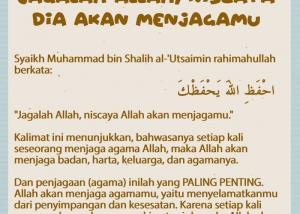 DIA AKAN MENJAGAMU
Syaikh Muhammad bin Shalih al-'Utsaimin rahimahullah
berkata:
احْفَظِ اللَّهَ يَحْفَظْكَ
"Jagalah Allah, niscaya Allah akan menjagamu."
Kalimat ini menunjukkan, bahwasanya setiap kali
seseorang menjaga agama Allah, maka Allah akan
menjaga badan, harta, keluarga, dan agamanya.
Dan penjagaan (agama) inilah yang PALING PENTING.
Allah akan menjaga agamamu, yaitu menyelamatkanmu
dari penyimpangan dan kesesatan. Karena setiap kali